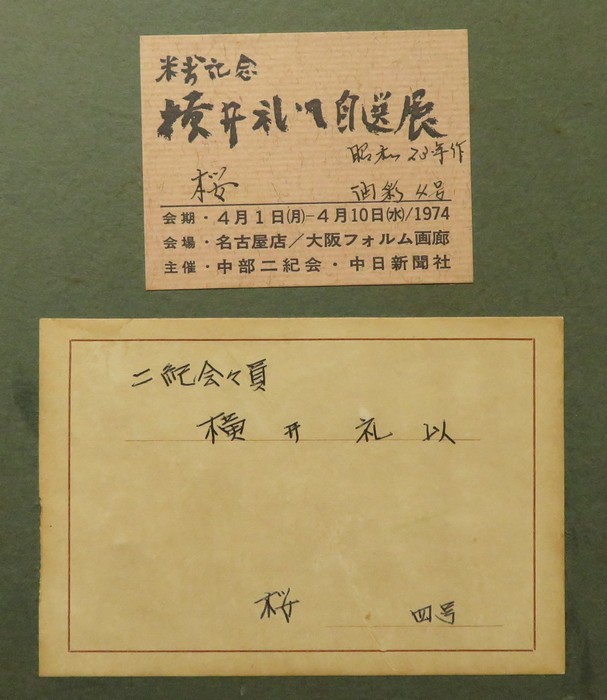 米寿記念
横井礼以自選展
昭和23年作
桜 油彩 4号
会期・4月1日(月)─4月10日(水)/1974
会場・名古屋店／大阪フォルム画廊
主催・中部二紀会・中日新聞社
二紀会々員
横井礼以
桜 四号